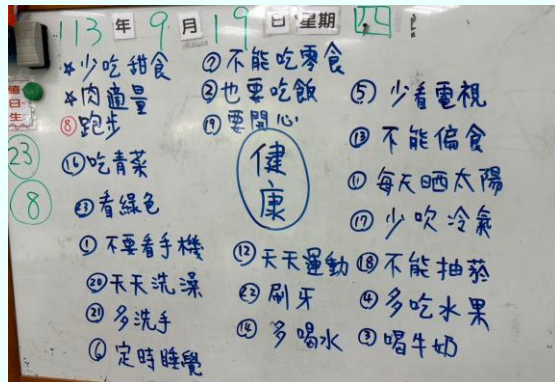 113年9月19日星期四
☆少吃甜食
☆肉適量
⑧跑步
⑯吃青菜
㉓看綠色
①不要看手機
⑳天天洗澡
㉑多洗手
⑥定時睡覺
⑦不能吃零食
②也要吃飯
⑲要開心
健康
⑫天天運動
㉒刷牙
⑭多喝水
⑤少看電視
⑬不能偏食
⑪每天晒太陽
⑰少吹冷氣
⑱不能抽菸
④多吃水果
③喝牛奶
值日生
23
8